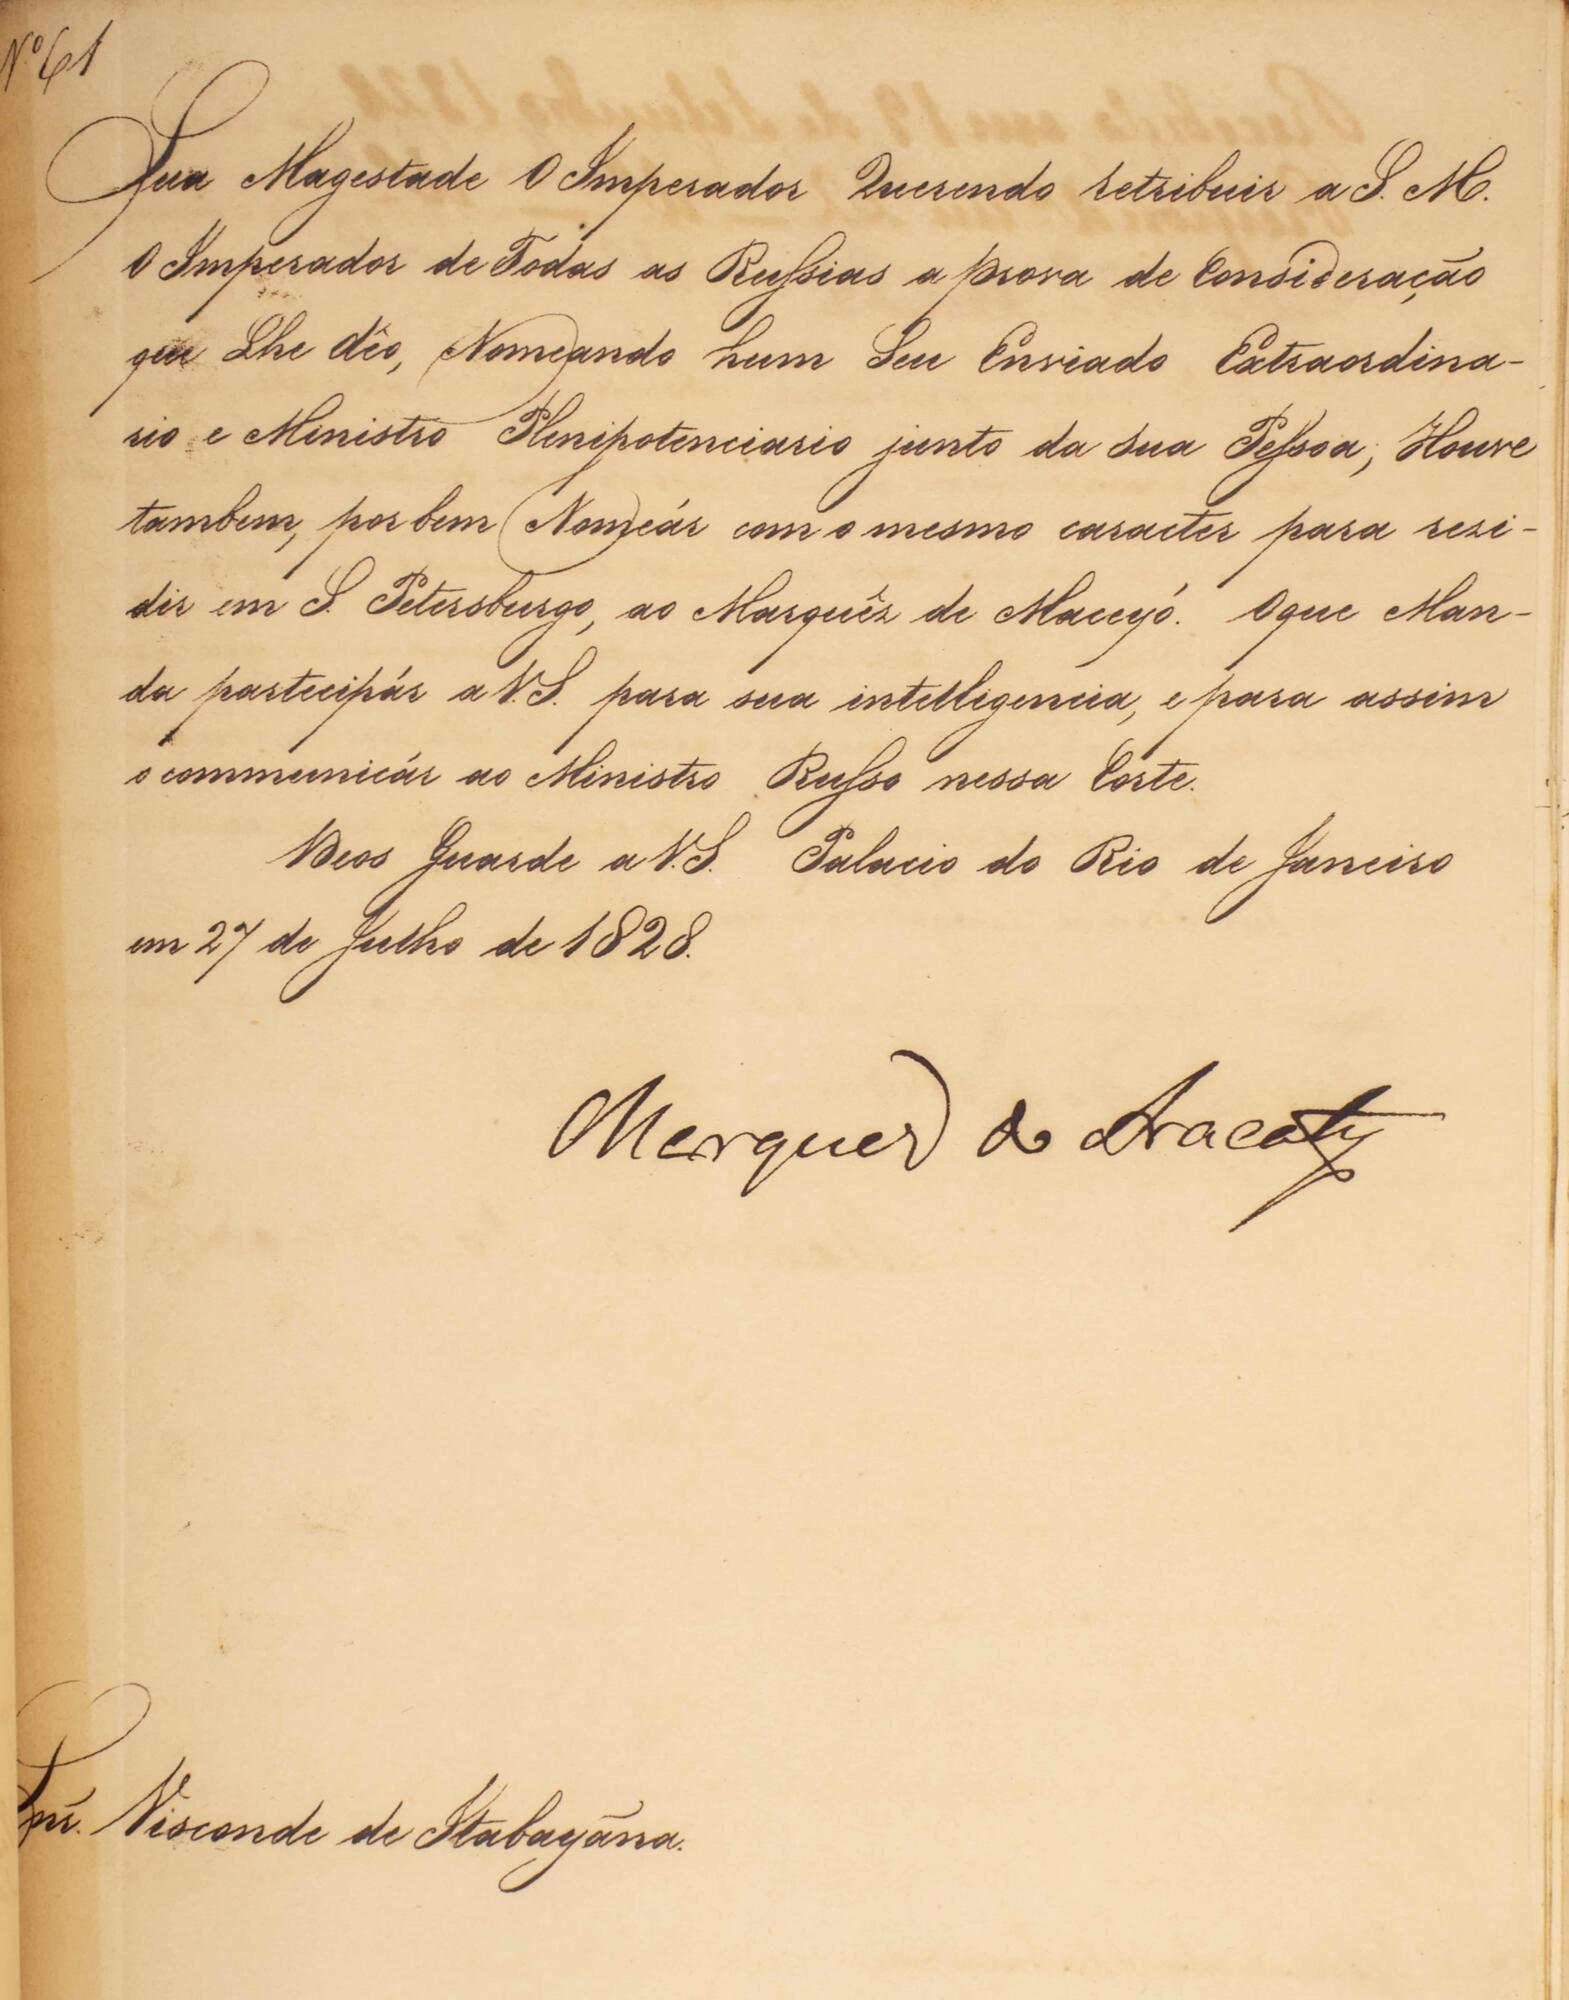 Nº 61
Sua Magestade O Imperador Querendo retribuir a S. M.
O Imperador de Todas as Russias a prova de Consideração
que Lhe dêo, Nomeando hum Seu Enviado Extraordina-
rio e Ministro Plenipotenciario junto da Sua Pessoa; Houve
tambem, por bem Nomeár com o mesmo caracter para rezi-
dir em S. Petersburgo, ao Marquêz de Maceyó. O que Man-
da partecipár a V. S. para sua intelligencia, e para assim
o communicár ao Ministro Russo nessa Corte.
Deos Guarde a V. S. Palacio do Rio de Janeiro
em 27 de Julho de 1828.
Marquez de Aracaty
Snr. Visconde de Itabayãna.